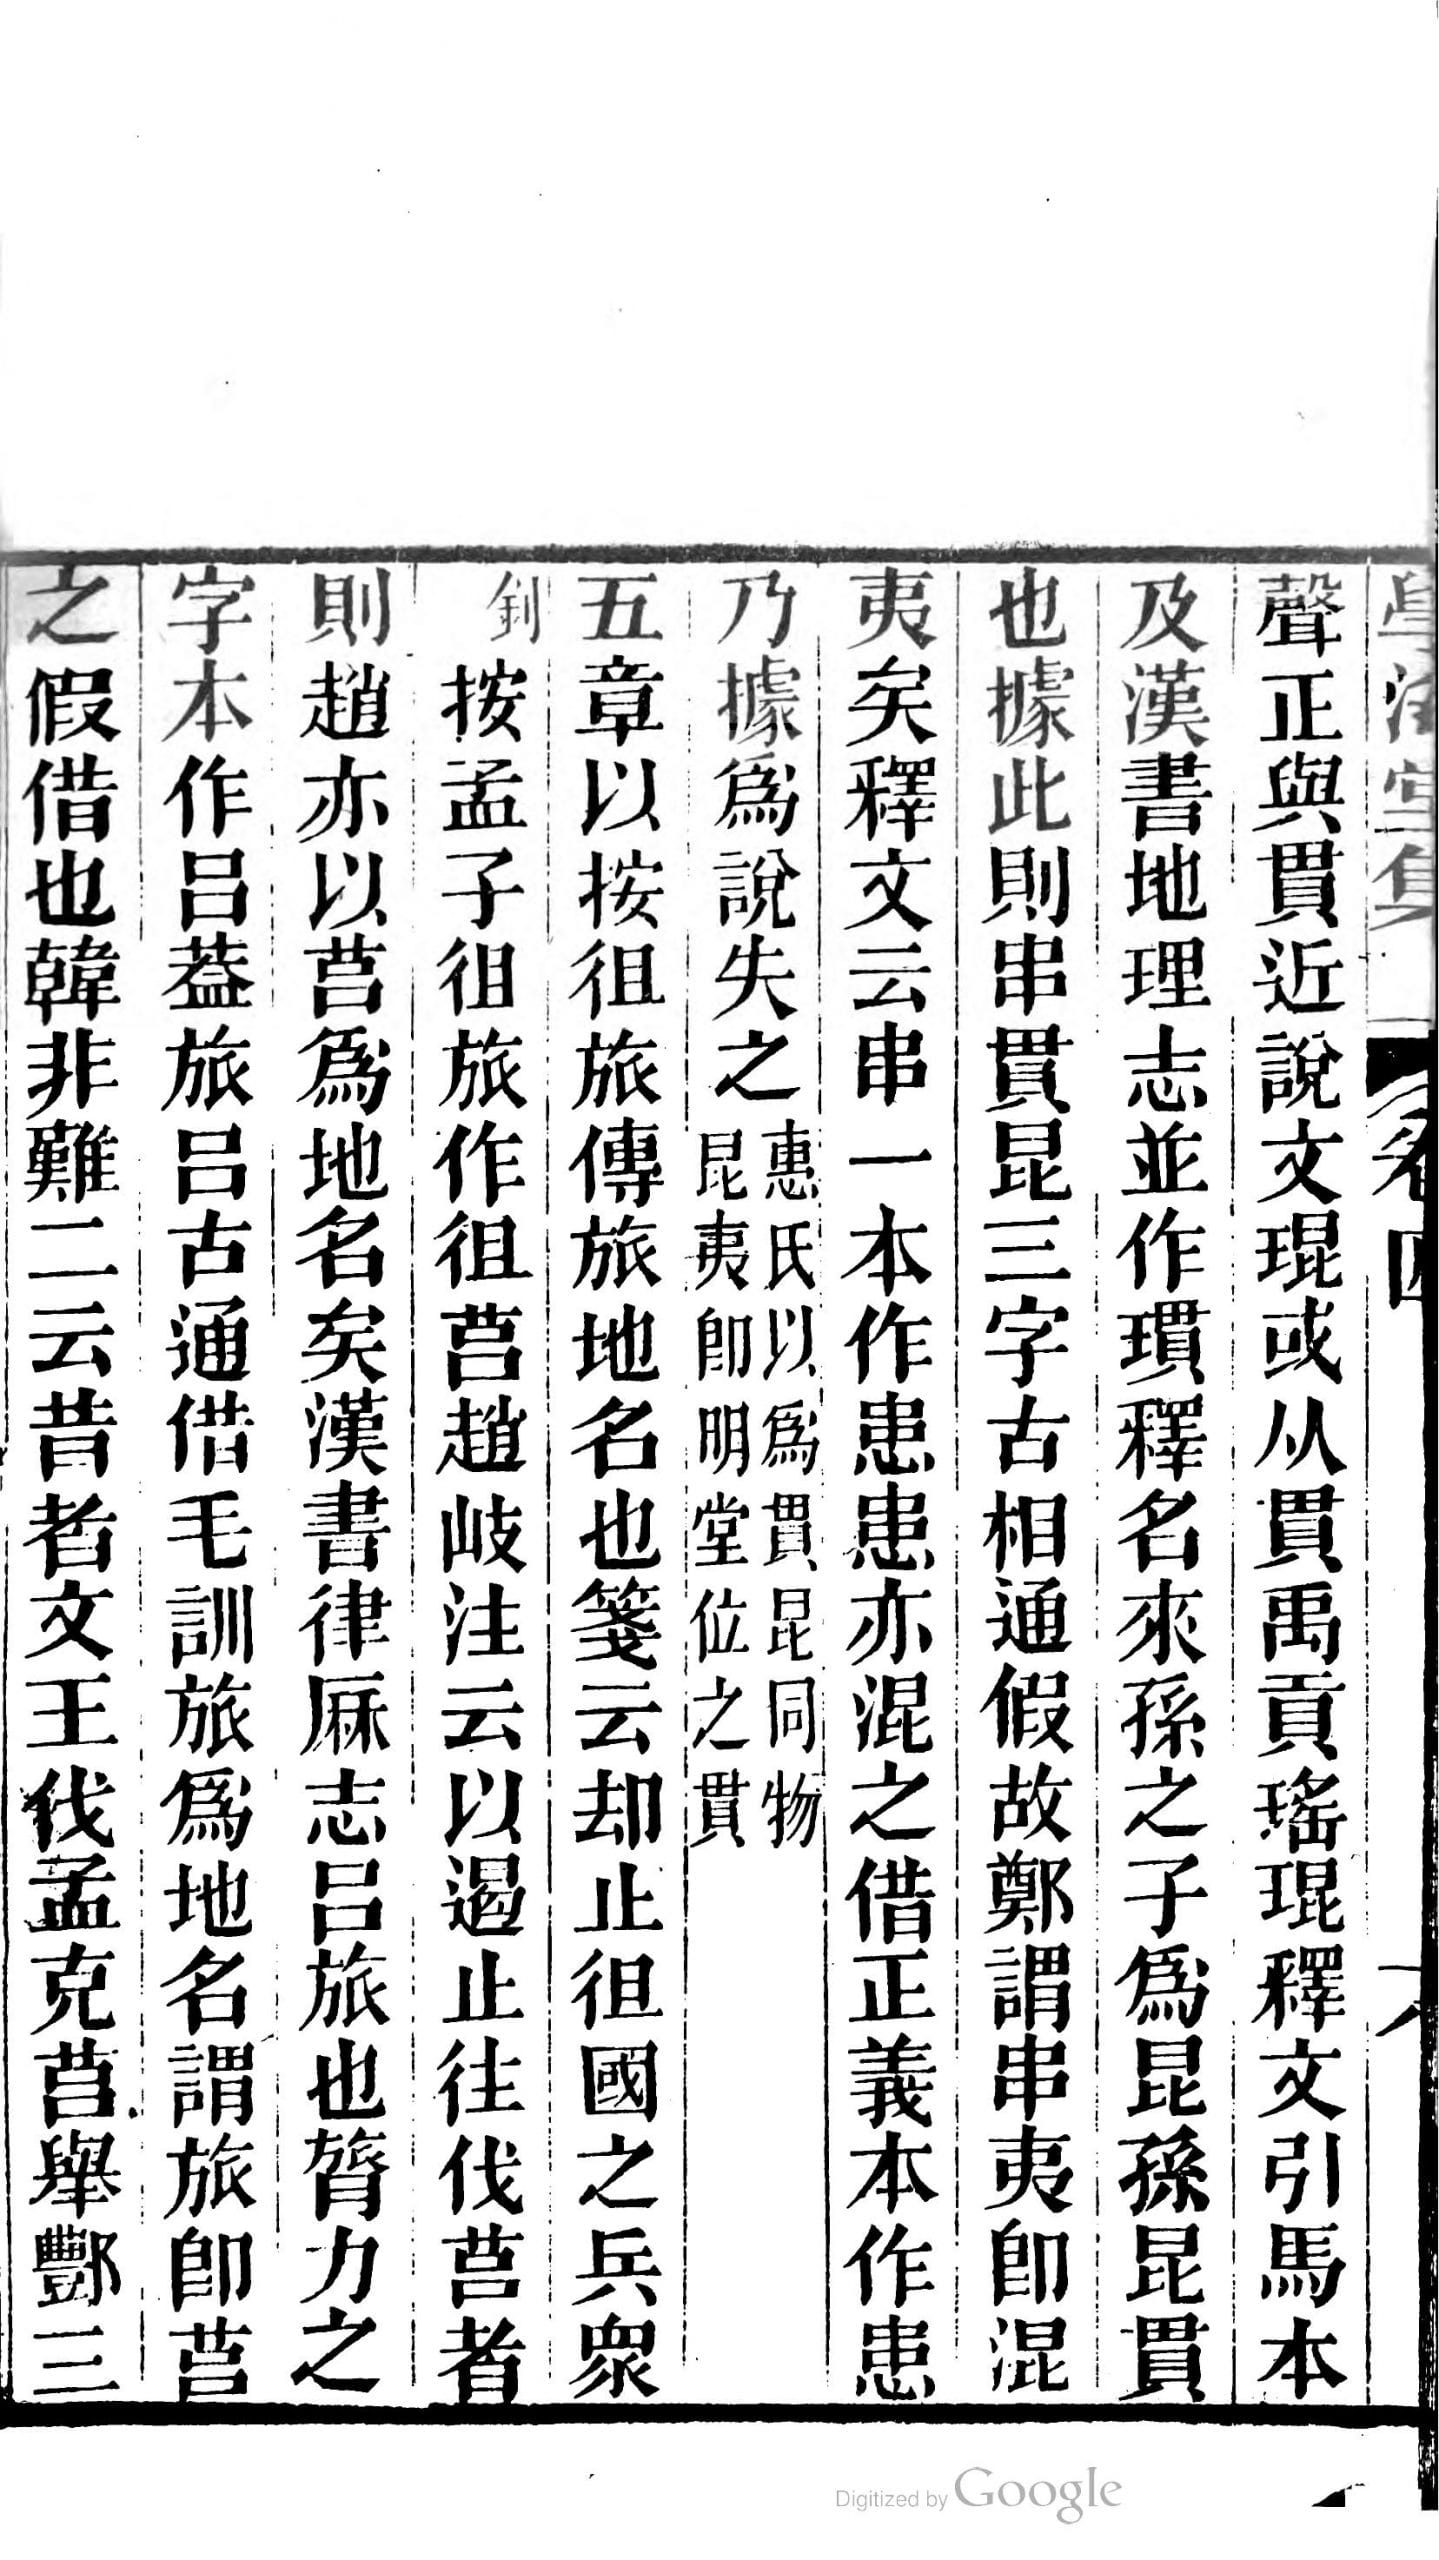 學海堂集
卷四
聲正與貫近說文琨或从貫禹貢瑤琨釋文引馬本
及漢書地理志並作瑻釋名來孫之子爲昆孫昆貫
也據此則串貫昆三字古相通假故鄭謂串夷卽混
夷矣釋文云串一本作患患亦混之借正義本作患
乃據爲說失之惠氏以爲貫昆同物
昆夷卽明堂位之貫
五章以按徂旅傳旅地名也箋云却止徂國之兵衆
釗按孟子徂旅作徂莒趙岐注云以遏止往伐莒者
則趙亦以莒爲地名矣漢書律厤志呂旅也膂力之
字本作呂葢旅呂古通借毛訓旅爲地名謂旅卽莒
之假借也韓非難二云昔者文王伐孟克莒舉酆三
Digitized by Google